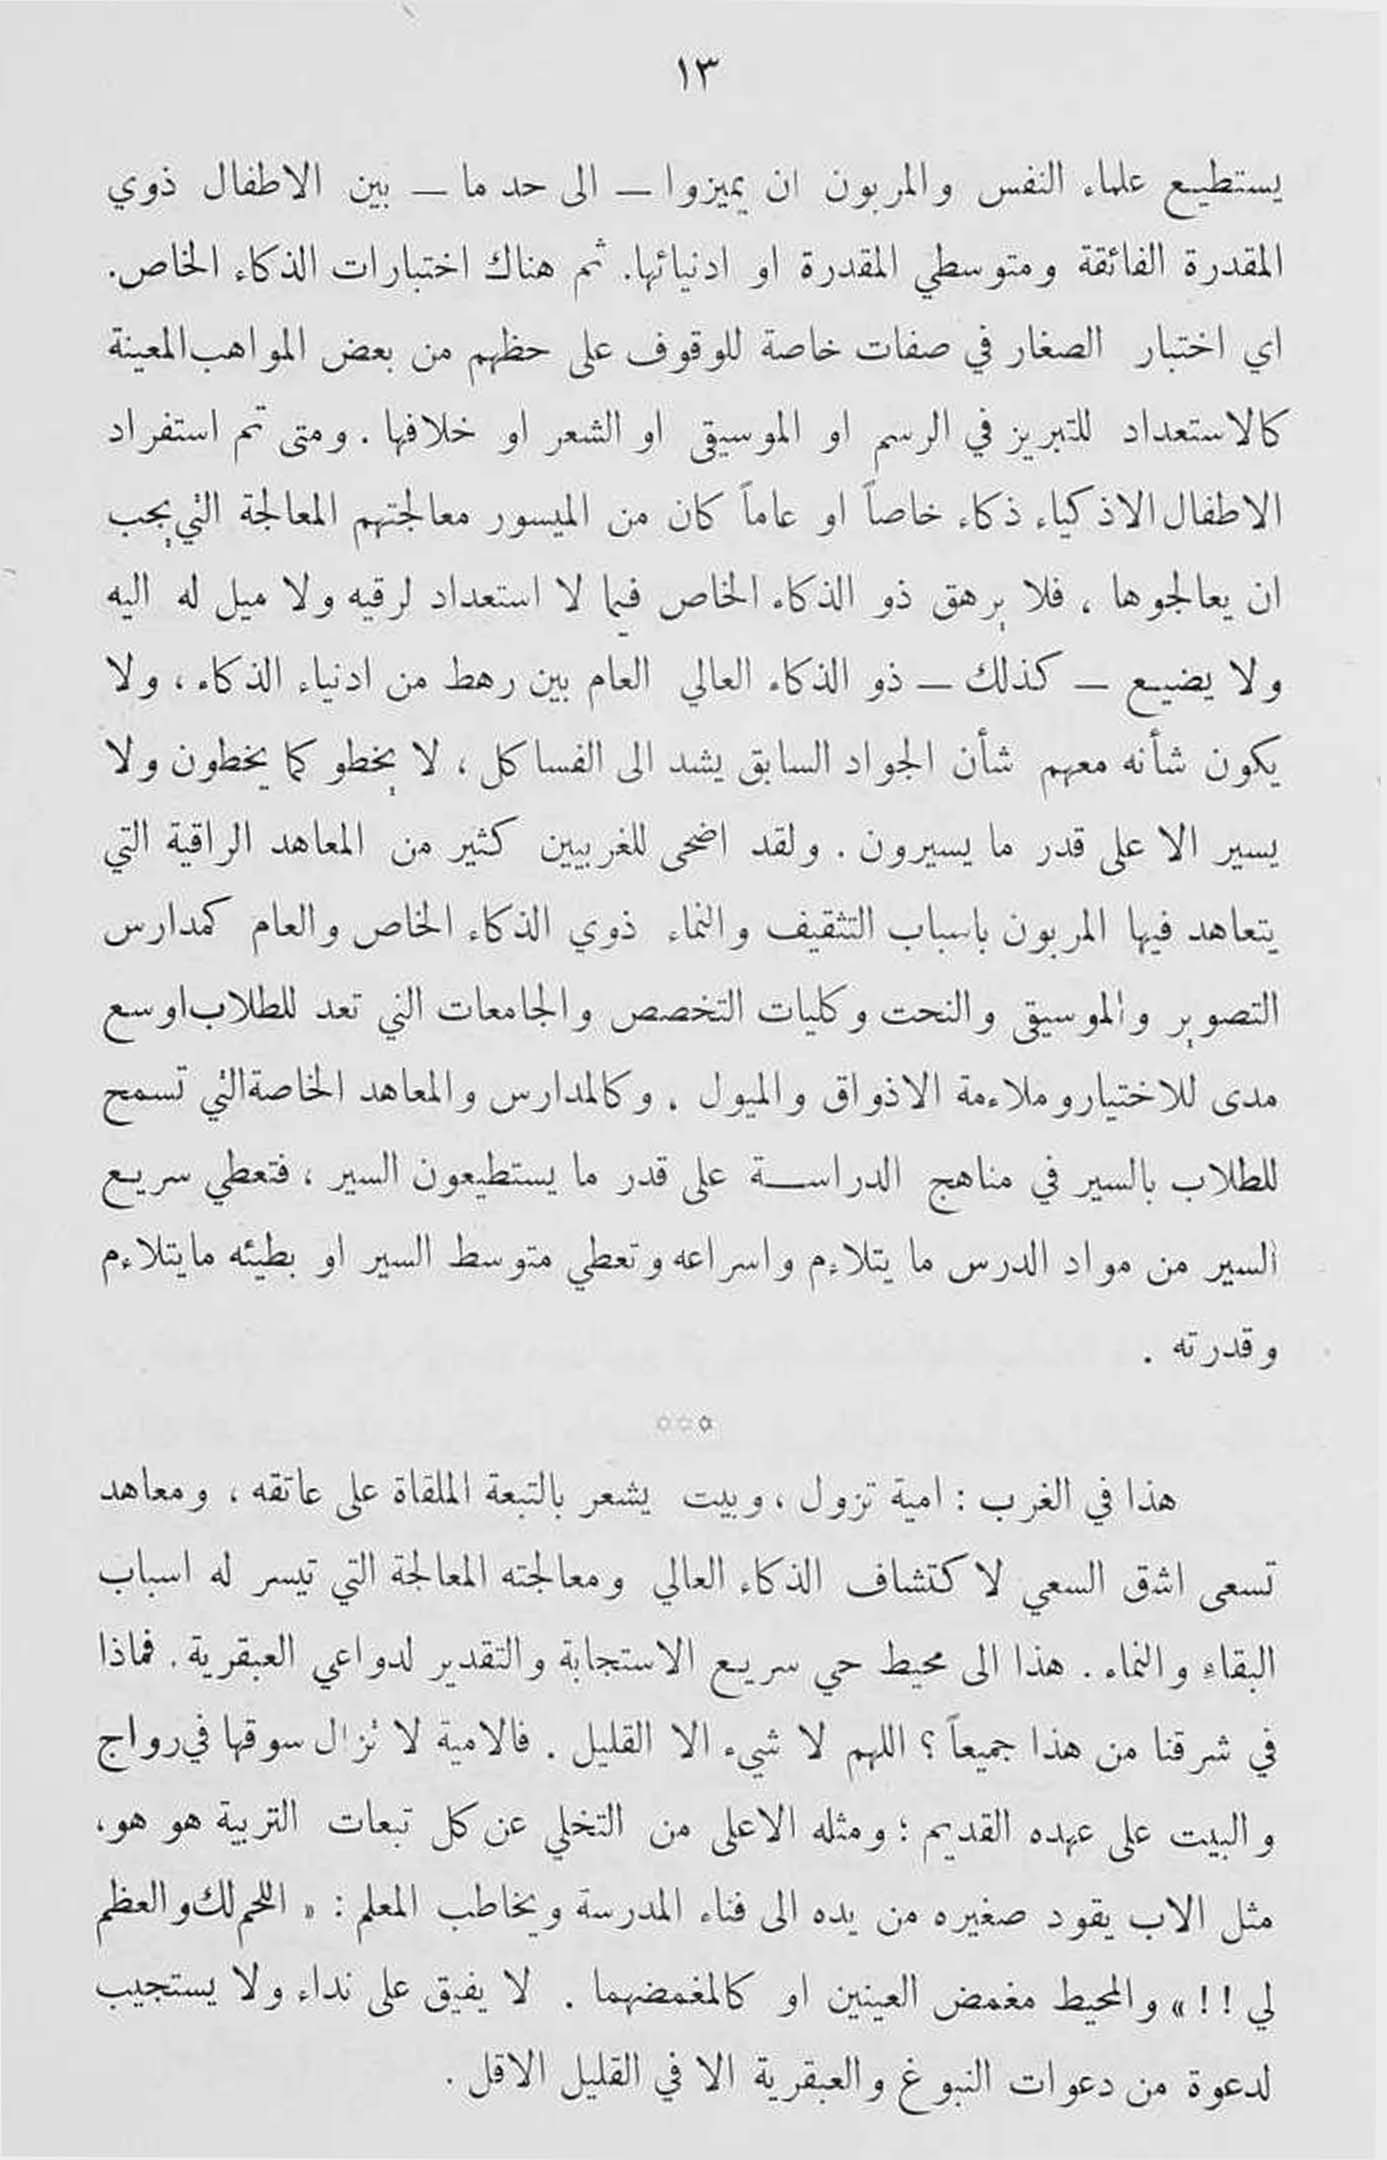 ١٣
يستطيع علماء النفس والمربون ان يميزوا – الى حد ما – بين الاطفال ذوي
المقدرة الفائقة ومتوسطي المقدرة او ادنيائها. ثم هناك اختبارات الذكاء الخاص.
اي اختبار الصغار في صفات خاصة للوقوف على حظهم من بعض المواهب المعينة
كالاستعداد للتبريز في الرسم او الموسيقى او الشعر او خلافها . ومتى تم استفراد
الاطفال الاذكياء ذكاء خاصاً او عاماً كان من الميسور معالجتهم المعالجة التي يجب
ان يعالجوها ، فلا يرهق ذو الذكاء الخاص فيما لا استعداد لرقيه ولا ميل له اليه
ولا يضيع – كذلك – ذو الذكاء العالي العام بين رهط من ادنياء الذكاء ، ولا
يكون شأنه معهم شأن الجواد السابق يشد الى الفساكل ، لا يخطو كما يخطون ولا
يسير الا على قدر ما يسيرون . ولقد اضحى للغربيين كثير من المعاهد الراقية التي
يتعاهد فيها المربون باسباب التثقيف والنماء ذوي الذكاء الخاص والعام كمدارس
التصوير والموسيقى والنحت وكليات التخصص والجامعات التي تعد للطلاب اوسع
مدى للاختيار وملاءمة الاذواق والميول . وكالمدارس والمعاهد الخاصة التي تسمح
للطلاب بالسير في مناهج الدراسة على قدر ما يستطيعون السير ، فتعطي سريع
السير من مواد الدرس ما يتلاءم واسراعه وتعطي متوسط السير او بطيئه ما يتلاءم
وقدرته .
✡✡✡
هذا في الغرب : امية تزول ، وبيت يشعر بالتبعة الملقاة على عاتقه ، ومعاهد
تسعى اشق السعي لاكتشاف الذكاء العالي ومعالجته المعالجة التي تيسر له اسباب
البقاء والنماء . هذا الى محيط حي سريع الاستجابة والتقدير لدواعي العبقرية . فماذا
في شرقنا من هذا جميعاً ؟ اللهم لا شيء الا القليل . فالامية لا تزال سوقها في رواج
والبيت على عهده القديم ؛ ومثله الاعلى من التخلي عن كل تبعات التربية هو هو،
مثل الاب يقود صغيره من يده الى فناء المدرسة ويخاطب المعلم : « اللحم لك والعظم
لي !! » والمحيط مغمض العينين او كالمغمضهما . لا يفيق على نداء ولا يستجيب
لدعوة من دعوات النبوغ والعبقرية الا في القليل الاقل .